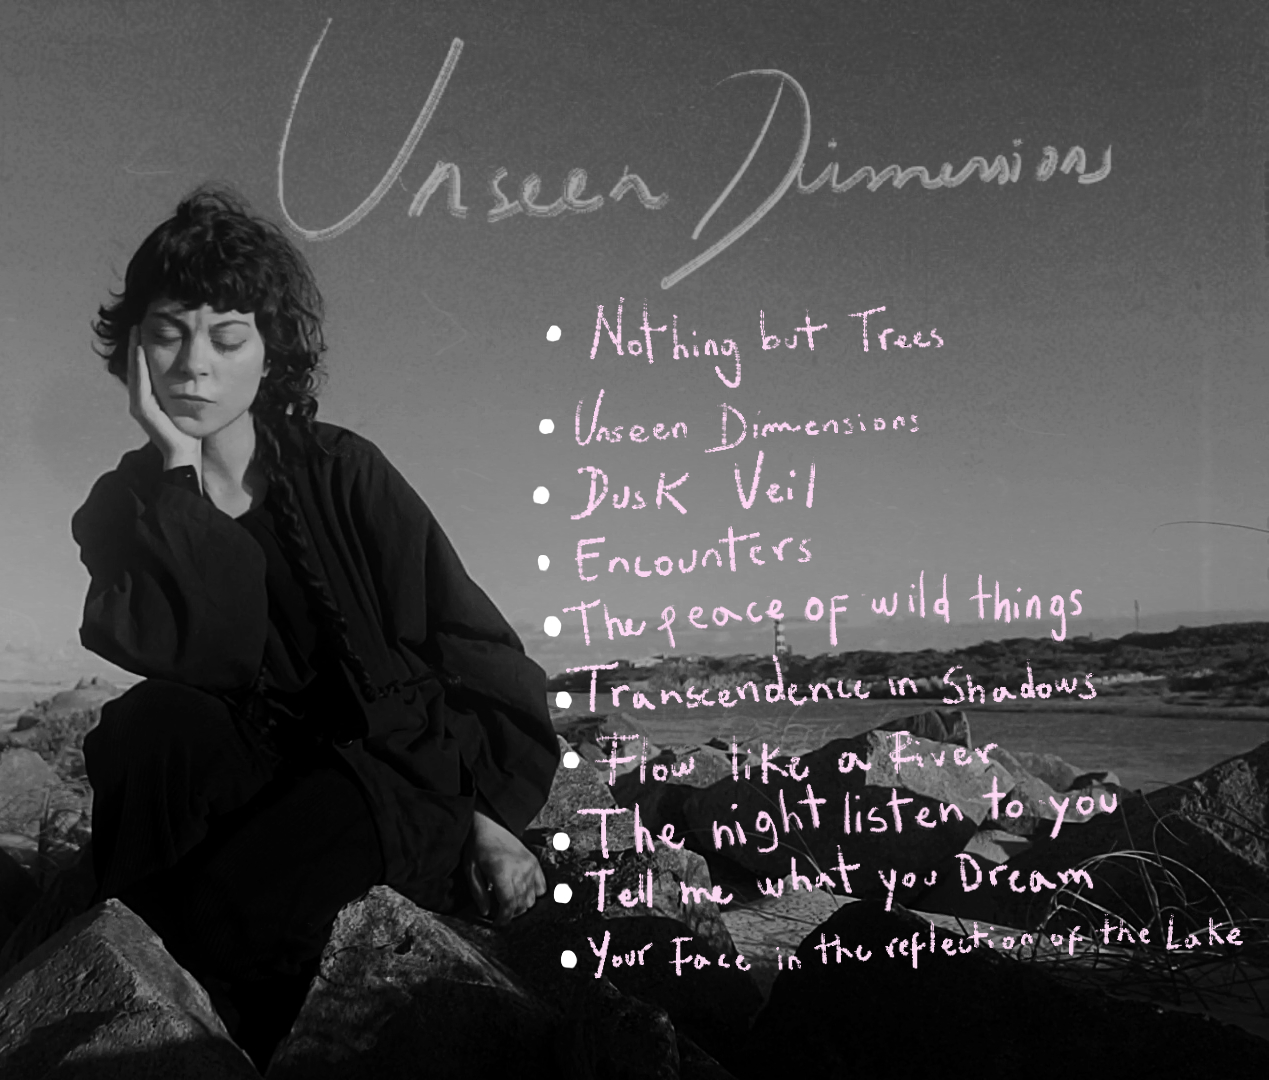 Unseen Dimensions
• Nothing but Trees
• Unseen Dimensions
• Dusk Veil
• Encounters
• The peace of wild things
• Transcendence in Shadows
• Flow like a River
• The night listen to you
• Tell me what you Dream
• Your Face in the reflection of the Lake